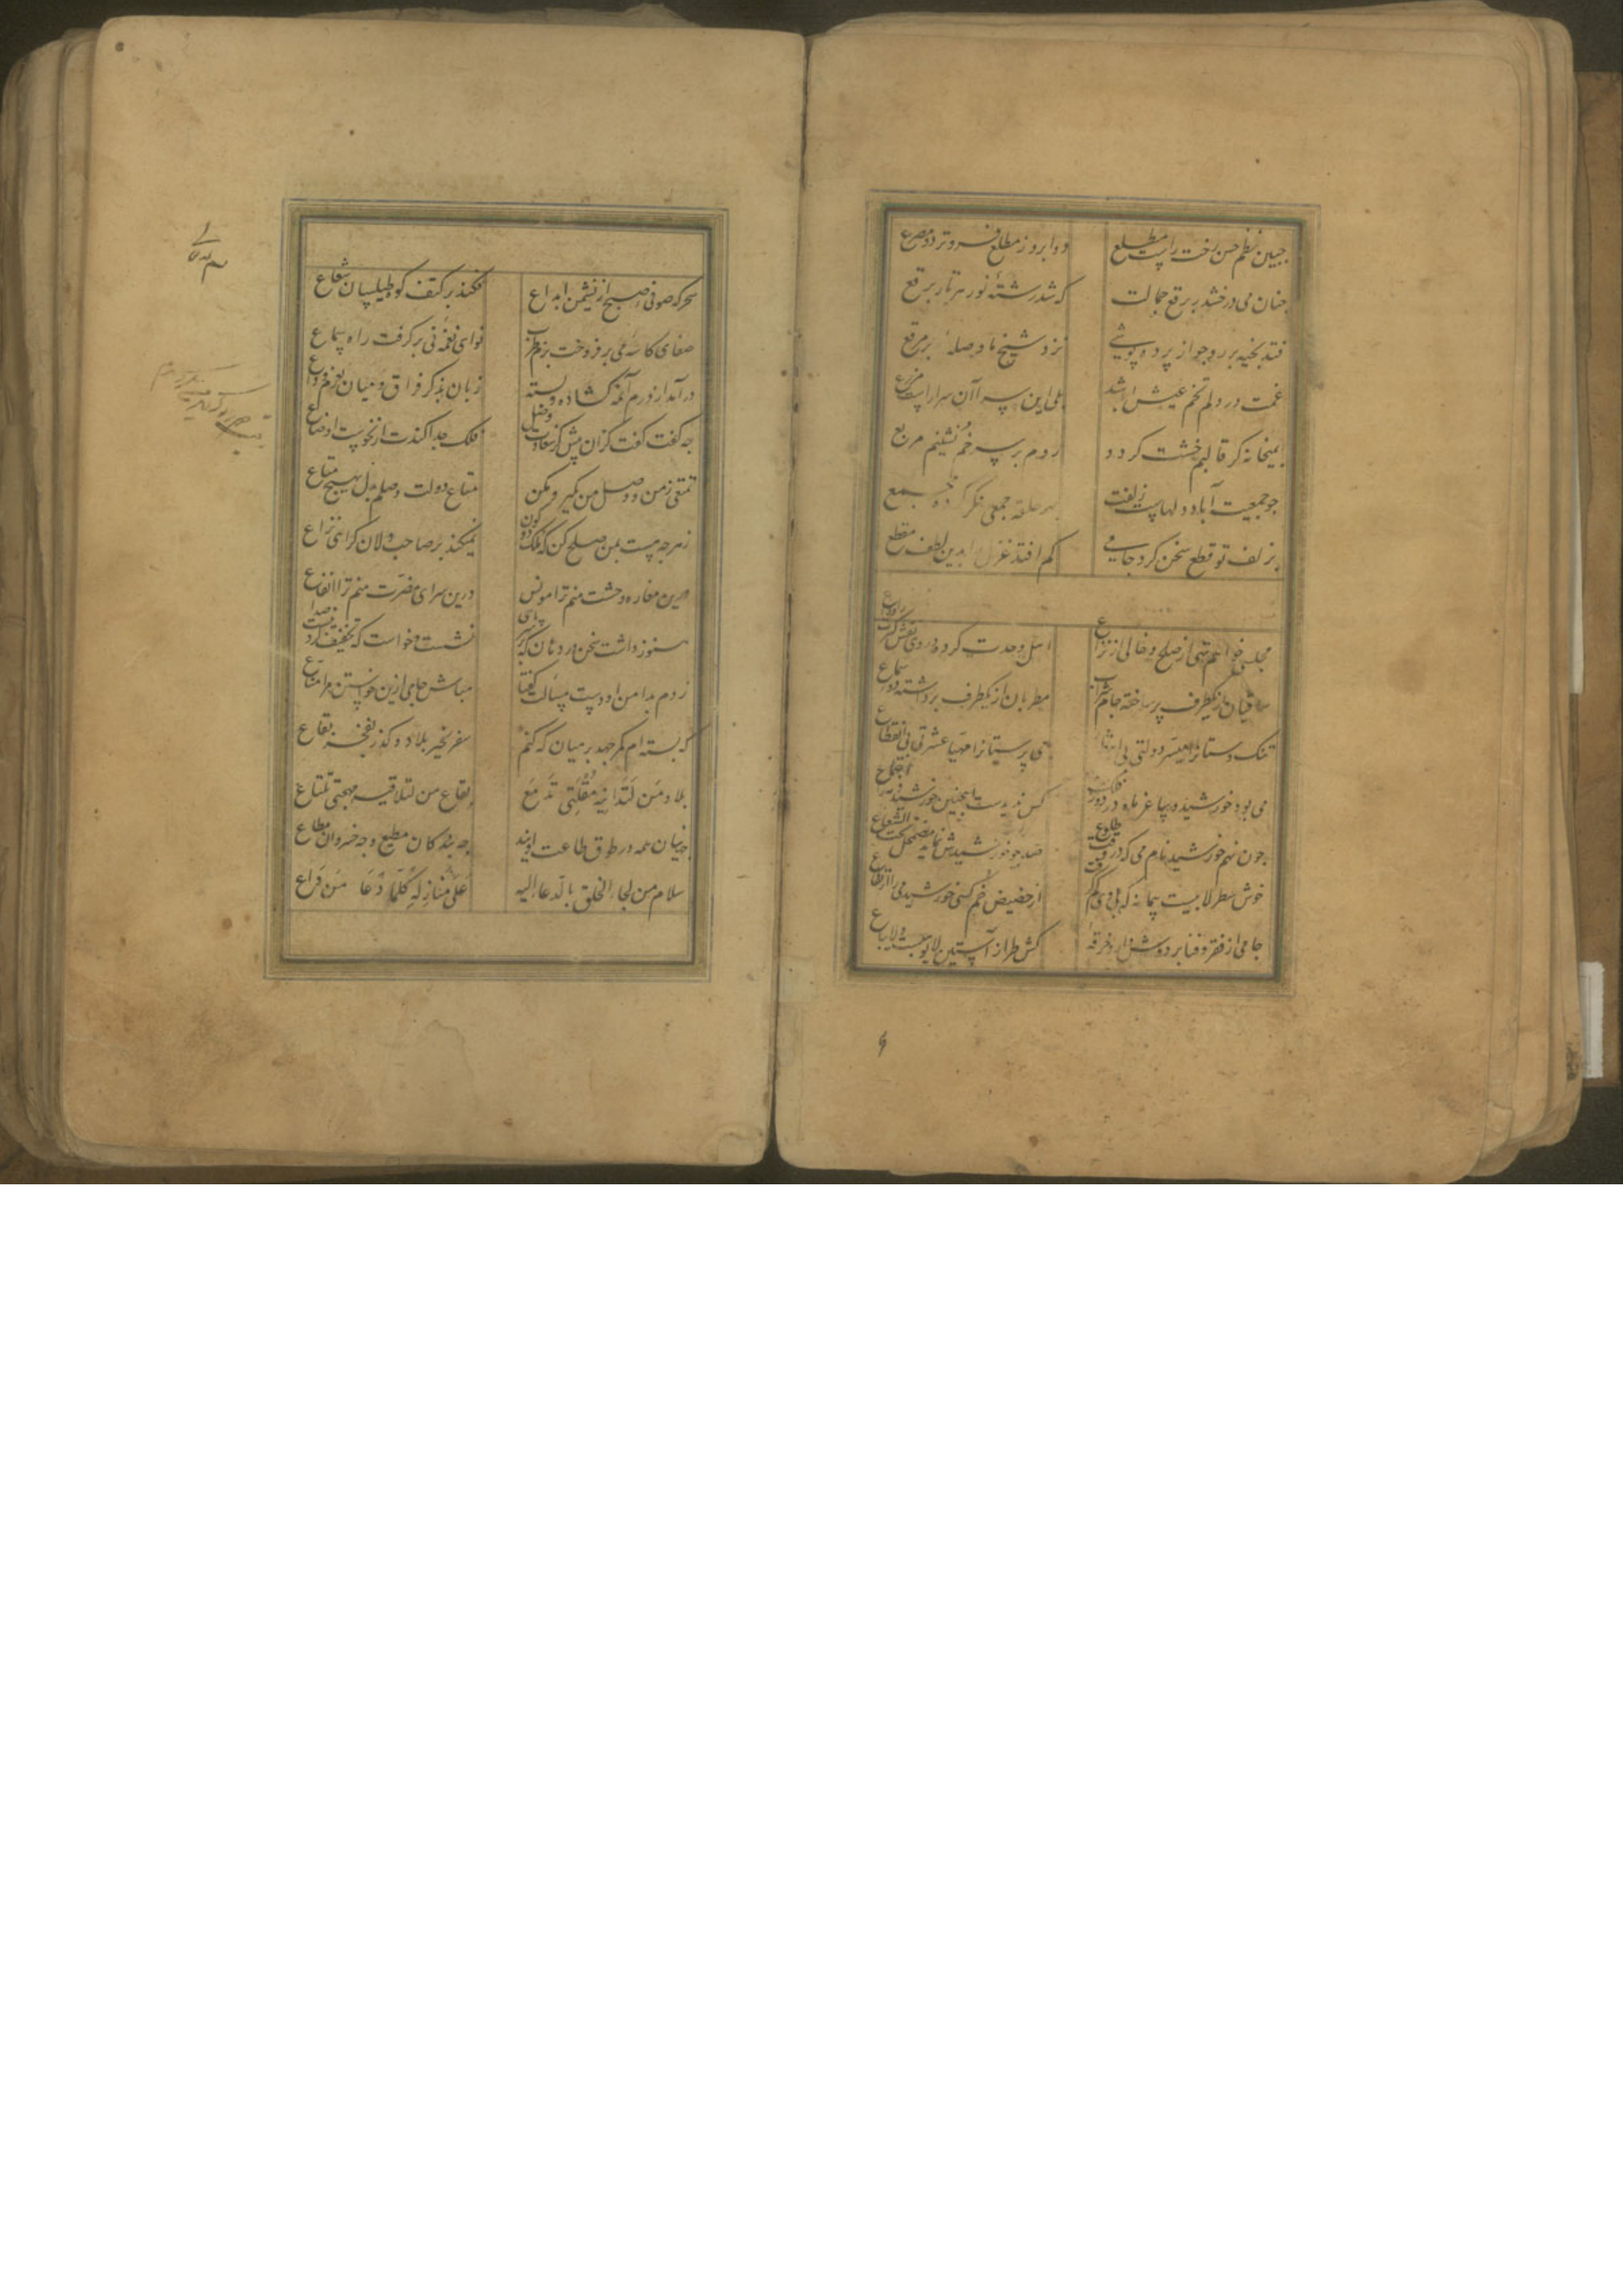 جبین نظم حسن رخت راست مطلع
دو ابرو ز مطلع فروتر دو مصرع
چنان می درخشد برقع جمالت
که شد رشته نور هر تار برقع
فتد بخیه بر رو چو از پرده پوشی
زد شیخ ما وصله بر مرقع
غمت در دلم تخم عیش ابد شد
بلی این سرا آن سرا راست مزرع
بمیخانه گر قالبم خشت گردد
روم بر سر خم نشینم مربع
چو جمعیت آباد دلهاست زلفت
بهر حلقه جمعی نگر کرده مجمع
بزلف تو قطع سخن کرد جامی
کم افتد غزل را بدین لطف مقطع
مجلسی خواهم تهی از صلح و خالی از نزاع
اهل وحدت کرده در وی نقش کثرت را وداع
ساقیان از یکطرف پر ساخته جام شراب
مطربان از یکطرف برداشته دور سماع
تنک دستانرا میسر دولتی بی
می پرستانرا مهیا عشرتی بی انقطاع
می بود خورشید و ساغر ماه در دور فلک
کس ندیدست اینچنین خورشید و مه را اجتماع
چون نهم خورشید نام می که در وقت طلوع
صد چو خورشیدش نماید مضمحل تحت الشعاع
خوش سطرلابیست پیمانه که با وی
از حضیض خم کنی خورشید می را ارتفاع
جامی از فقر و فنا بر دوش دارد خرقه
کش طراز آستین لا یوهب و لا یباع
سحر که صوفی صبح از نشیمن ابداع
فکند بر کتف کوه طیلسان شعاع
صفای کاسه می بر فروخت بزم طرب
نوای نغمه نی بر گرفت راه سماع
در آمد از درم آن مه گشاده و بسته
زبان بذکر فراق و میان بعزم وداع
چه گفت گفت کزان پیش کز سعادت وصل
فلک جدا کندت از نحوست اوضاع
تمتعی ز من و وصل من بگیر و مکن
متاع دولت وصلم بدل بهیچ متاع
ز هر چه هست بمن صلح کن که ملک دو کون
نمیکند بر صاحب دلان کرای نزاع
درین مغاره وحشت منم ترا مونس
درین سرای مضرت منم ترا انفاع
هنوز داشت سخن در دهان که
نشست و خواست که تخفیف
زدم بدامن او دست مسالت گفتا
مباش جامی ازین خواستن مرا مناع
که بسته ام کمر جهد بر میان که کنم
سفر بخیر بلاد و گذر بفخر بقاع
بلاد من لتدانیه مقلتی تدمع
بقاع من لتلاقیه مهجتی تلتاع
جهانیان همه در طوق طاعت ویند
چه بندگان مطیع و چه خسروان مطاع
سلام من لجاء الخلق بالدعا الیه
علی منازله کلما دعا من داع